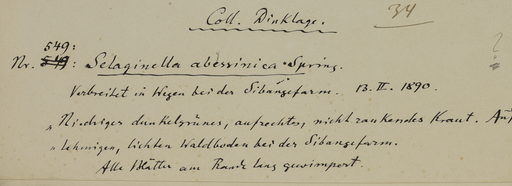 Coll. Dinklage.
34
549:
Nr. 549: Selaginella abessinica Spring.
Verbreitet in Wegen bei der Sibangefarm. 13. II. 1890.
?
„Niedriger dunkelgrünes, aufrechtes, nicht rankendes Kraut. Auf
„lehmigen, lichten Waldboden bei der Sibangefarm.
Alle Blätter am Rande lang gewimpert.